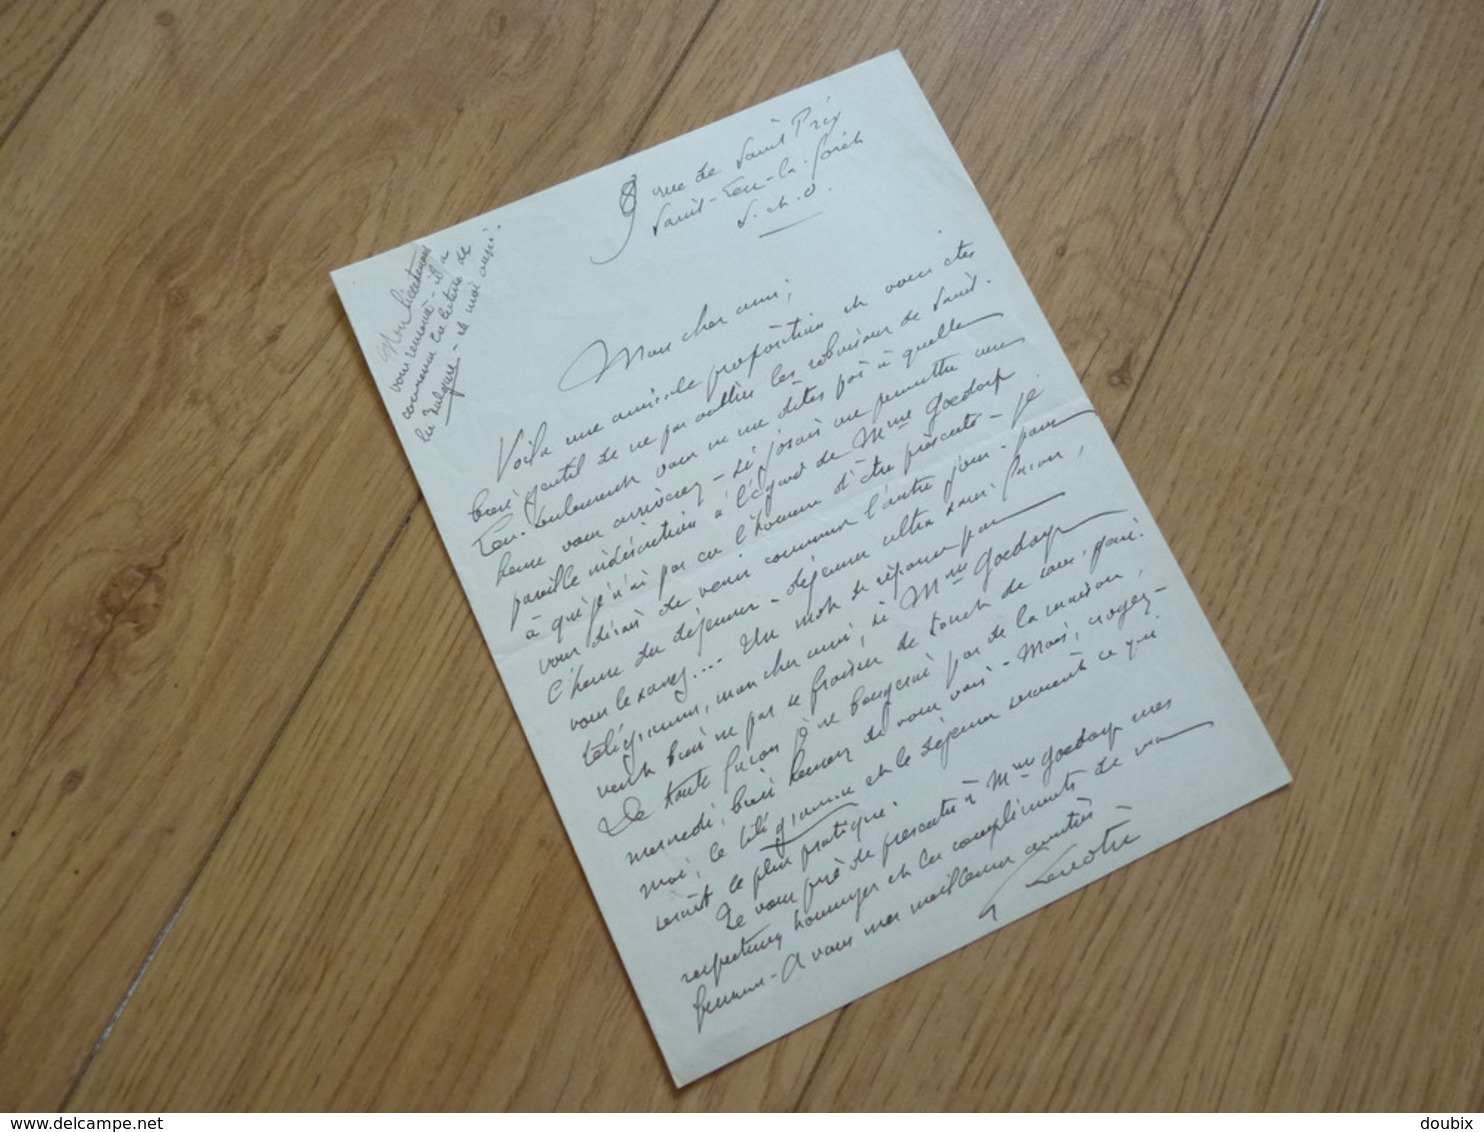 8 rue de Saint Prix
Saint-Leu-la-forêt
S. et. O.
Mon lieutenant
vous remercie - il a
commencé la lecture de
la Bulgare - et moi aussi.
Mon cher ami,
Voilà une amicale proposition et vous êtes
bien gentil de ne pas oublier les reboiseurs de Saint-
Leu. Seulement vous ne me dites pas à quelle
heure vous arriverez - si j'osais me permettre une
pareille indiscrétion à l'égard de Mme Goedorp
à qui je n'ai pas eu l'honneur d'être présenté - je
vous dirais de venir comme l'autre jour - pour
l'heure du déjeuner - déjeuner ultra sans façon,
vous le savez... Un mot de réponse par
télégramme, mon cher ami, si Mme Goedorp
veut bien ne pas se froisser de tant de sans-gêne.
De toute façon je ne bougerai pas de la maison,
mercredi, bien heureux de vous voir - Mais, croyez-
moi, le télégramme et le déjeuner seraient ce qui
serait le plus pratique.
Je vous prie de présenter à Mme Goedorp mes
respectueux hommages et les compliments de ma
femme - A vous mes meilleures amitiés
G Lenotre
delcampe.net
doubix